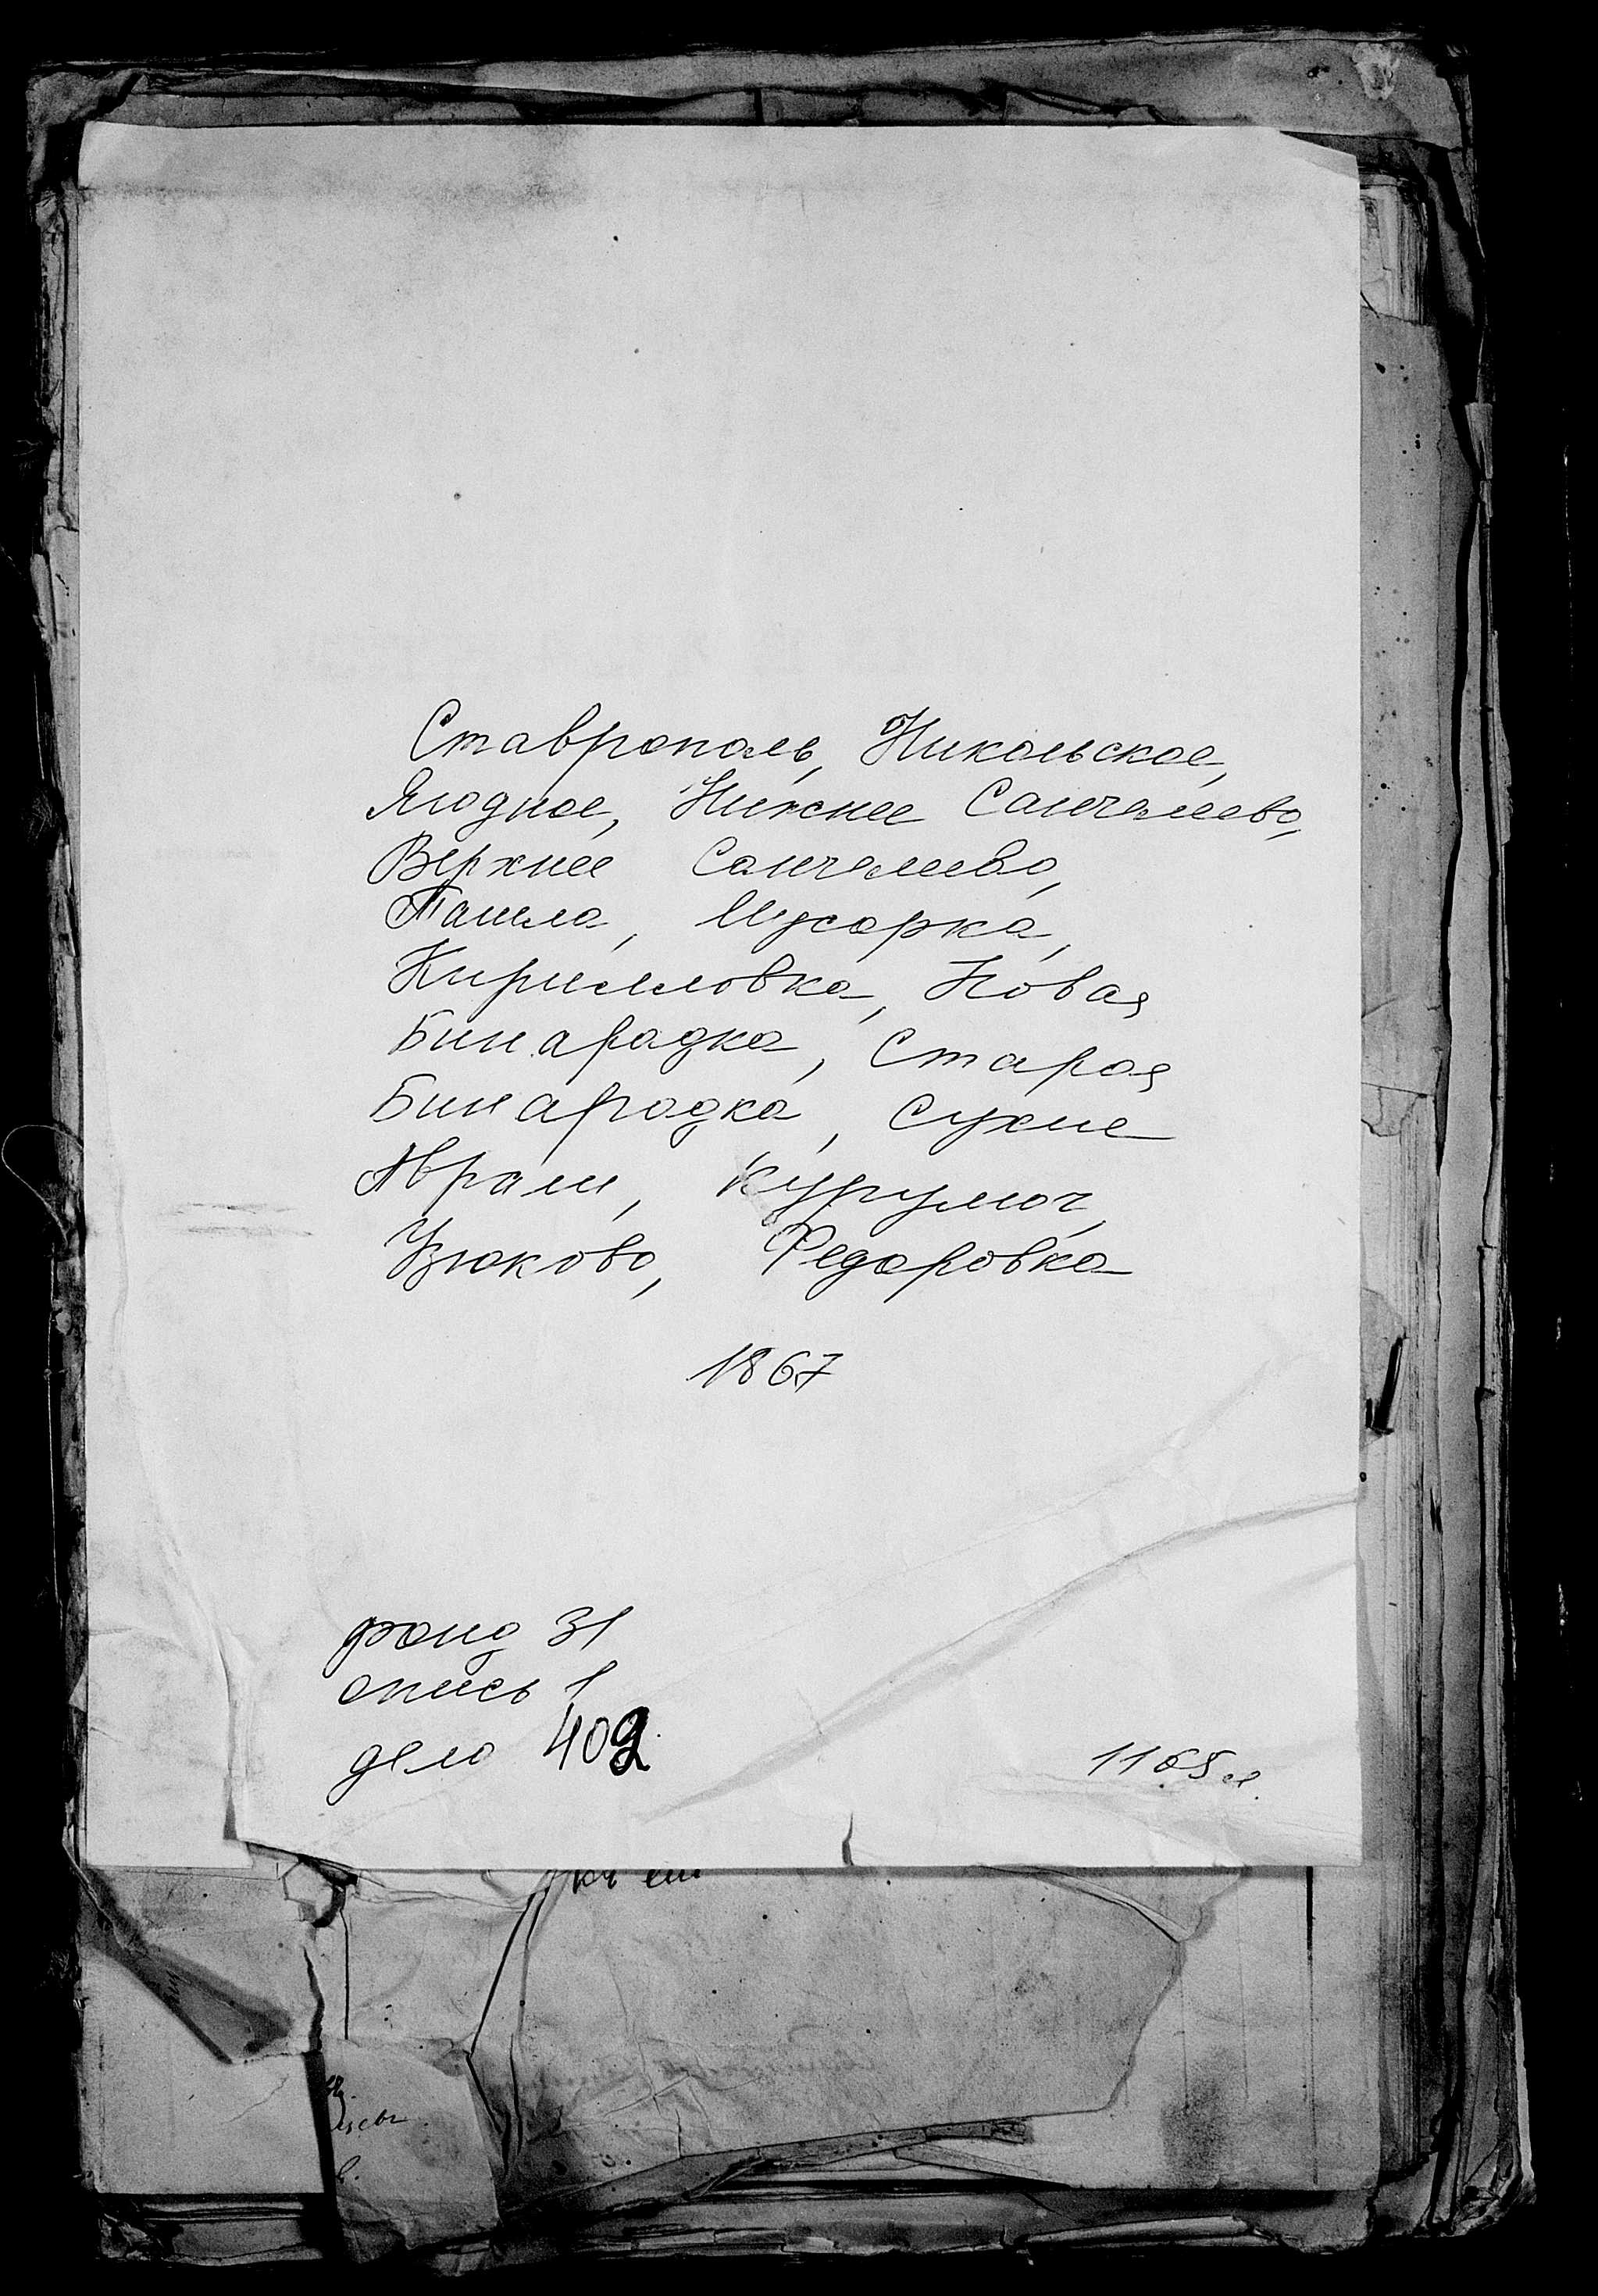 Ставрополь, Никольское,
Ягодное, Нижнее Санчелеево,
Верхнее Санчелеево,
Ташла, Мусорка,
Кирилловка, Новая
Бинарадка, Старая
Бинарадка, Сухие
Аврали, Курумоч,
Узюково, Федоровка
1867
фонд 31
опись 1
дело 402
1165 л.